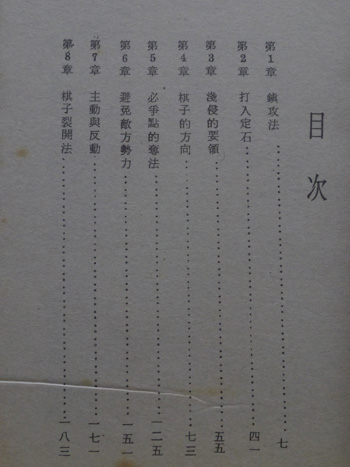 目次
第1章 鎮攻法……………七
第2章 打入定石……………四一
第3章 淺侵的要領……………五五
第4章 棋子的方向……………七三
第5章 必爭點的奪法……………一二五
第6章 避免敵方勢力……………一五一
第7章 主動與反動……………一七一
第8章 棋子裂開法……………一八三